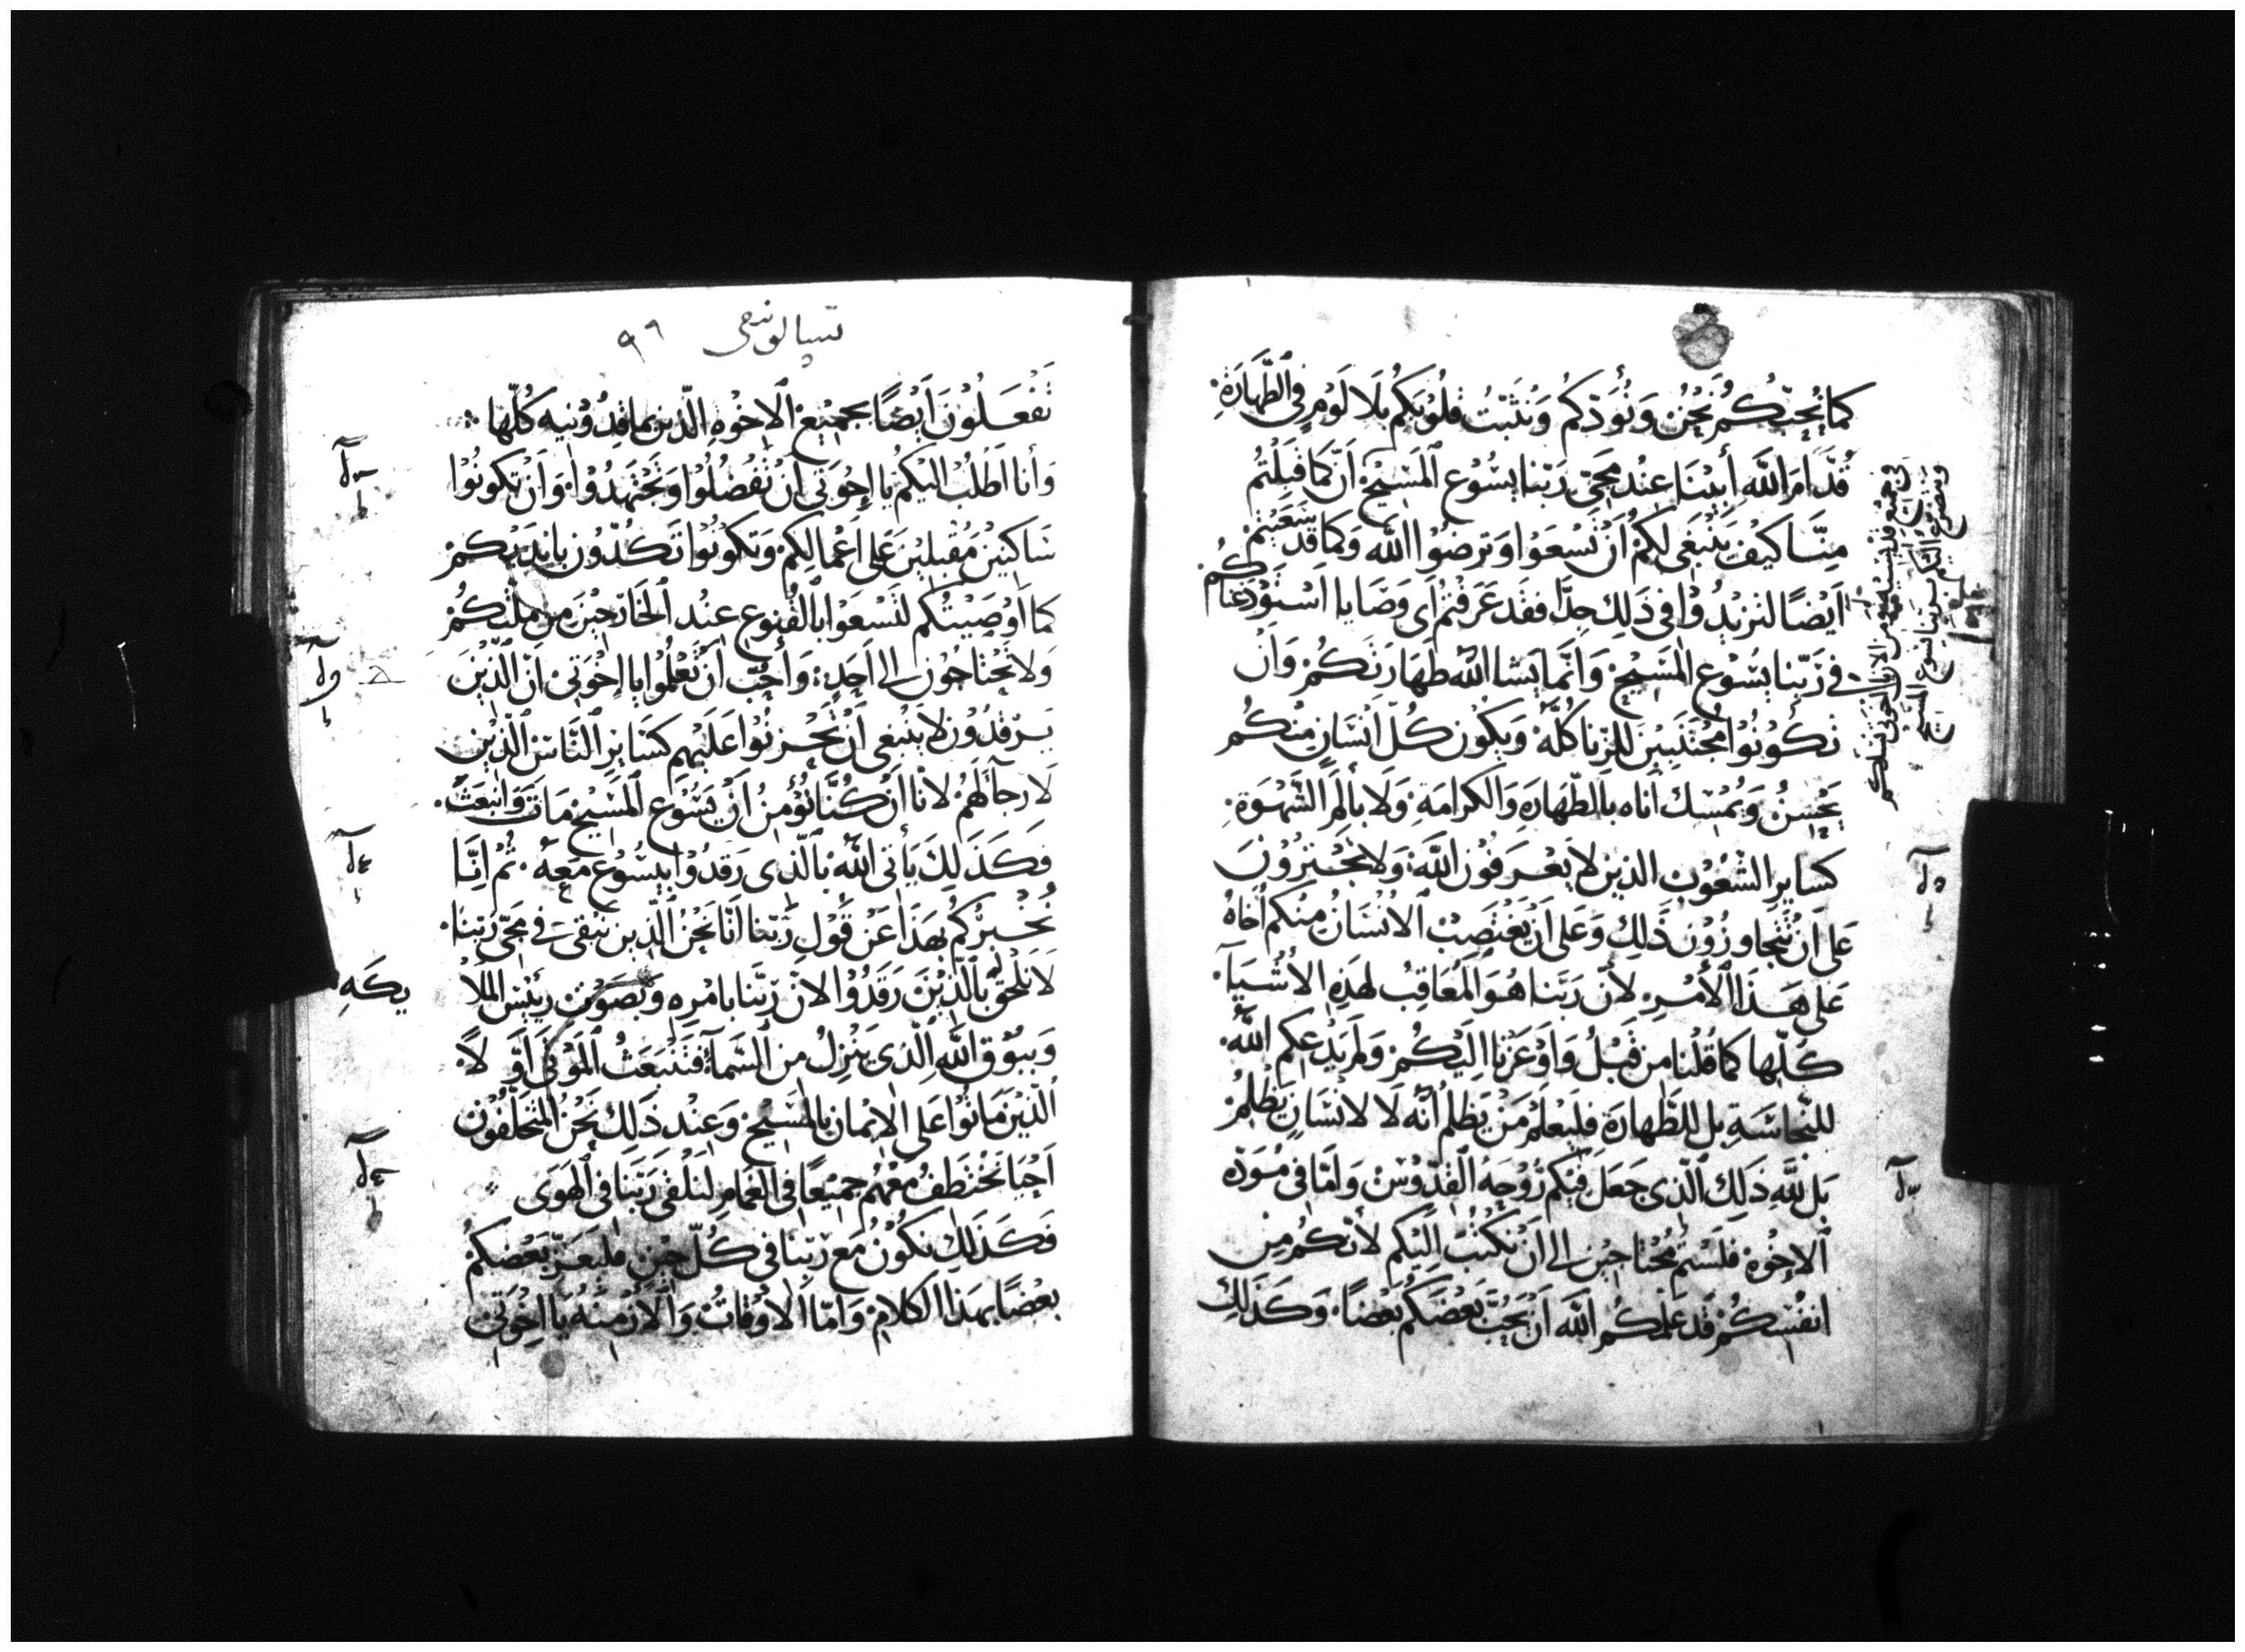 كما نُحِبُّكُمْ نَحْنُ وَنُوَدّكُمْ وَنُثَبّتُ قلُوْبَكُمْ بلَا لَوْمٍ فِى الطَّهَارَةِ
قُدَّامَ اللَّهِ أَبِيْنَا عِنْدَ مَجِىّ رَبّنا يسُوْع المَسِيْحْ أَنّ كَمَا قَبِلْتُمُ
مِنَّا كَيْفَ يَنْبَغِى لَكُمْ أَنْ تَسْعَوْا وَترضُوْا اللَّه وَكمَا قَدْ سَعَيْتُمْ
أَيْضًا لتزيْدُوْا فِى ذَلِكَ جِدًّا فقَد عَرَفتُمْ أَى وَصَايا اسْتَوْدَعْنَاكُمْ
فى رَبّنا يسُوْع المَسِيْحْ وَانّما يَشا اللَّه طهَارَتَكُمْ وَاَنْ
تَكُوْنُوْا مُجْتَنِبِيْنَ للزِّنا كُلّهْ وَيَكُونْ كُلّ انْسَانٍ مِنْكُم
يُحْسِنُ وَيُمْسِك أناه بالطّهَارَةِ وَالكرامَةِ وَلا بأَلَمِ الشَّهْوَةِ
كسَايِرِ الشّعُوْبِ الذين لا يعْرفُوْنَ اللَّه وَلا تجْتَرُوْنَ
عَلى اَنْ تتجَاوزُوْنَ ذَلِكَ وَعَلى اَنْ يَغْتَصِبْ الانْسَانُ مِنْكم أَخَاهُ
عَلى هَذَا الأَمْرِ لأنّ رَبّنا هُوَ المُعَاقِبُ لهَذِهِ الأشْيَآءِ
كُلّها كما قُلْنا مِن قَبْلُ وَأَوْعَزنا إِلَيْكُمْ وَلَمْ يَدْعكم اللَّه
للنّجاسَةِ بَل للطّهارَةِ فليَعْلَمْ مَنْ يَظلمُ أَنّه لَا لانْسَانٍ يَظْلِمُ
بَل للَّهِ ذَلِكَ الّذِى جَعَلَ فيْكم رُوْحَهُ القدّوْسْ وَأمّا فِى مُوَدّه
الإِخْوِة فَلَسْتمْ مُحْتاجِيْنَ إلى أنْ نَكتُبْ إِلَيْكم لأنّكُمْ مِن
انفُسِكُمْ قَد عَلَّمَكُم اللَّه أَنْ يُحِبَّ بَعْضكُمْ بَعْضًا وَكَذَلِكَ
وَنتضرّع إِلَيْكم بربّنا يسوع المسيح
تسالونيقى ٩٩
تفْعَلُوْنَ أَيْضًا بجَمِيْعِ الإخْوِهِ الّذين بماقدُوْنيه كُلّها
وَأنا اَطْلُبُ اليْكُمْ يا إخْوَتِى أَنْ تَفْضُلُوْا وَتَجْتَهِدُوْا وَانْ تكونُوْا
سَاكِتيْنَ مُقْبِليْنَ عَلى اَعْمالِكُمْ وَتكوْنُوْا تَكُدّوُنَ بايْديْكُمْ
كما أَوْصَيْتكُم لتَسْعَوْا بالقُنوْعِ عِنْدَ الخَارِجيْنَ مِنْ مِلّتكُمْ
وَلا تَحْتاجُونَ إلى أَحَدٍ وَأُحِبُّ أَنْ تَعْلمُوْا يا إِخْوَتِىْ انّ الّذِيْنَ
يَرْقدُوْنَ لا يَنْبغِى أَنْ تَحْزنُوْا عَلَيْهِم كسَايِرِ النَّاسْ الّذِيْن
لَا رجآ لَهُمْ لأنّا انْ كُنَّا نُؤمِنُ اَنْ يَسُوْع المَسِيْحْ مَاتَ وَانْبَعَثَ
فَكَذَلِكَ يَأتِى اللَّه بالّذِى رَقدُوْا بيَسُوْع مَعَهُ ثُمْ إنّا
نُخْبِرُكُم بهَذَا عَنْ قَوْلِ رَبّنا انّا نَحْنُ الّذِيْن نبْقى فى مَجِىّ رَبّنا
لَا نلْحقُ بالّذِيْنَ رَقَدُوْا لانّ رَبّنا بامْرِهِ وَبصَوْتِ رئيْسِ المَلا
يكَهِ
وَببُوْقِ اللَّه الّذِى يَنْزِلُ من السّمآءِ فتَنْبَعَثُ المَوْتى أوّلًا
الّذيْنَ مَاتُوا عَلَى الإيْمانِ بالمَسِيْحْ وَعِنْد ذَلِكَ نَحْنُ المُتَخَلّفُوْن
اَحْيَا نُخْتَطفُ مَعَهُمْ جَمِيْعًا فِى الغَمَامِ لنَلقى رَبَّنَا فى الهَوَى
فَكَذَلِكَ نكُوْنُ مَع رَبّنا فى كُلّ حِيْنٍ فليُعَزّ بَعْضكُمُ
بعْضًا بهَذا الكلامْ وَامّا الأوْقاتُ وَالأزْمِنُه يا إخْوَتِىْ